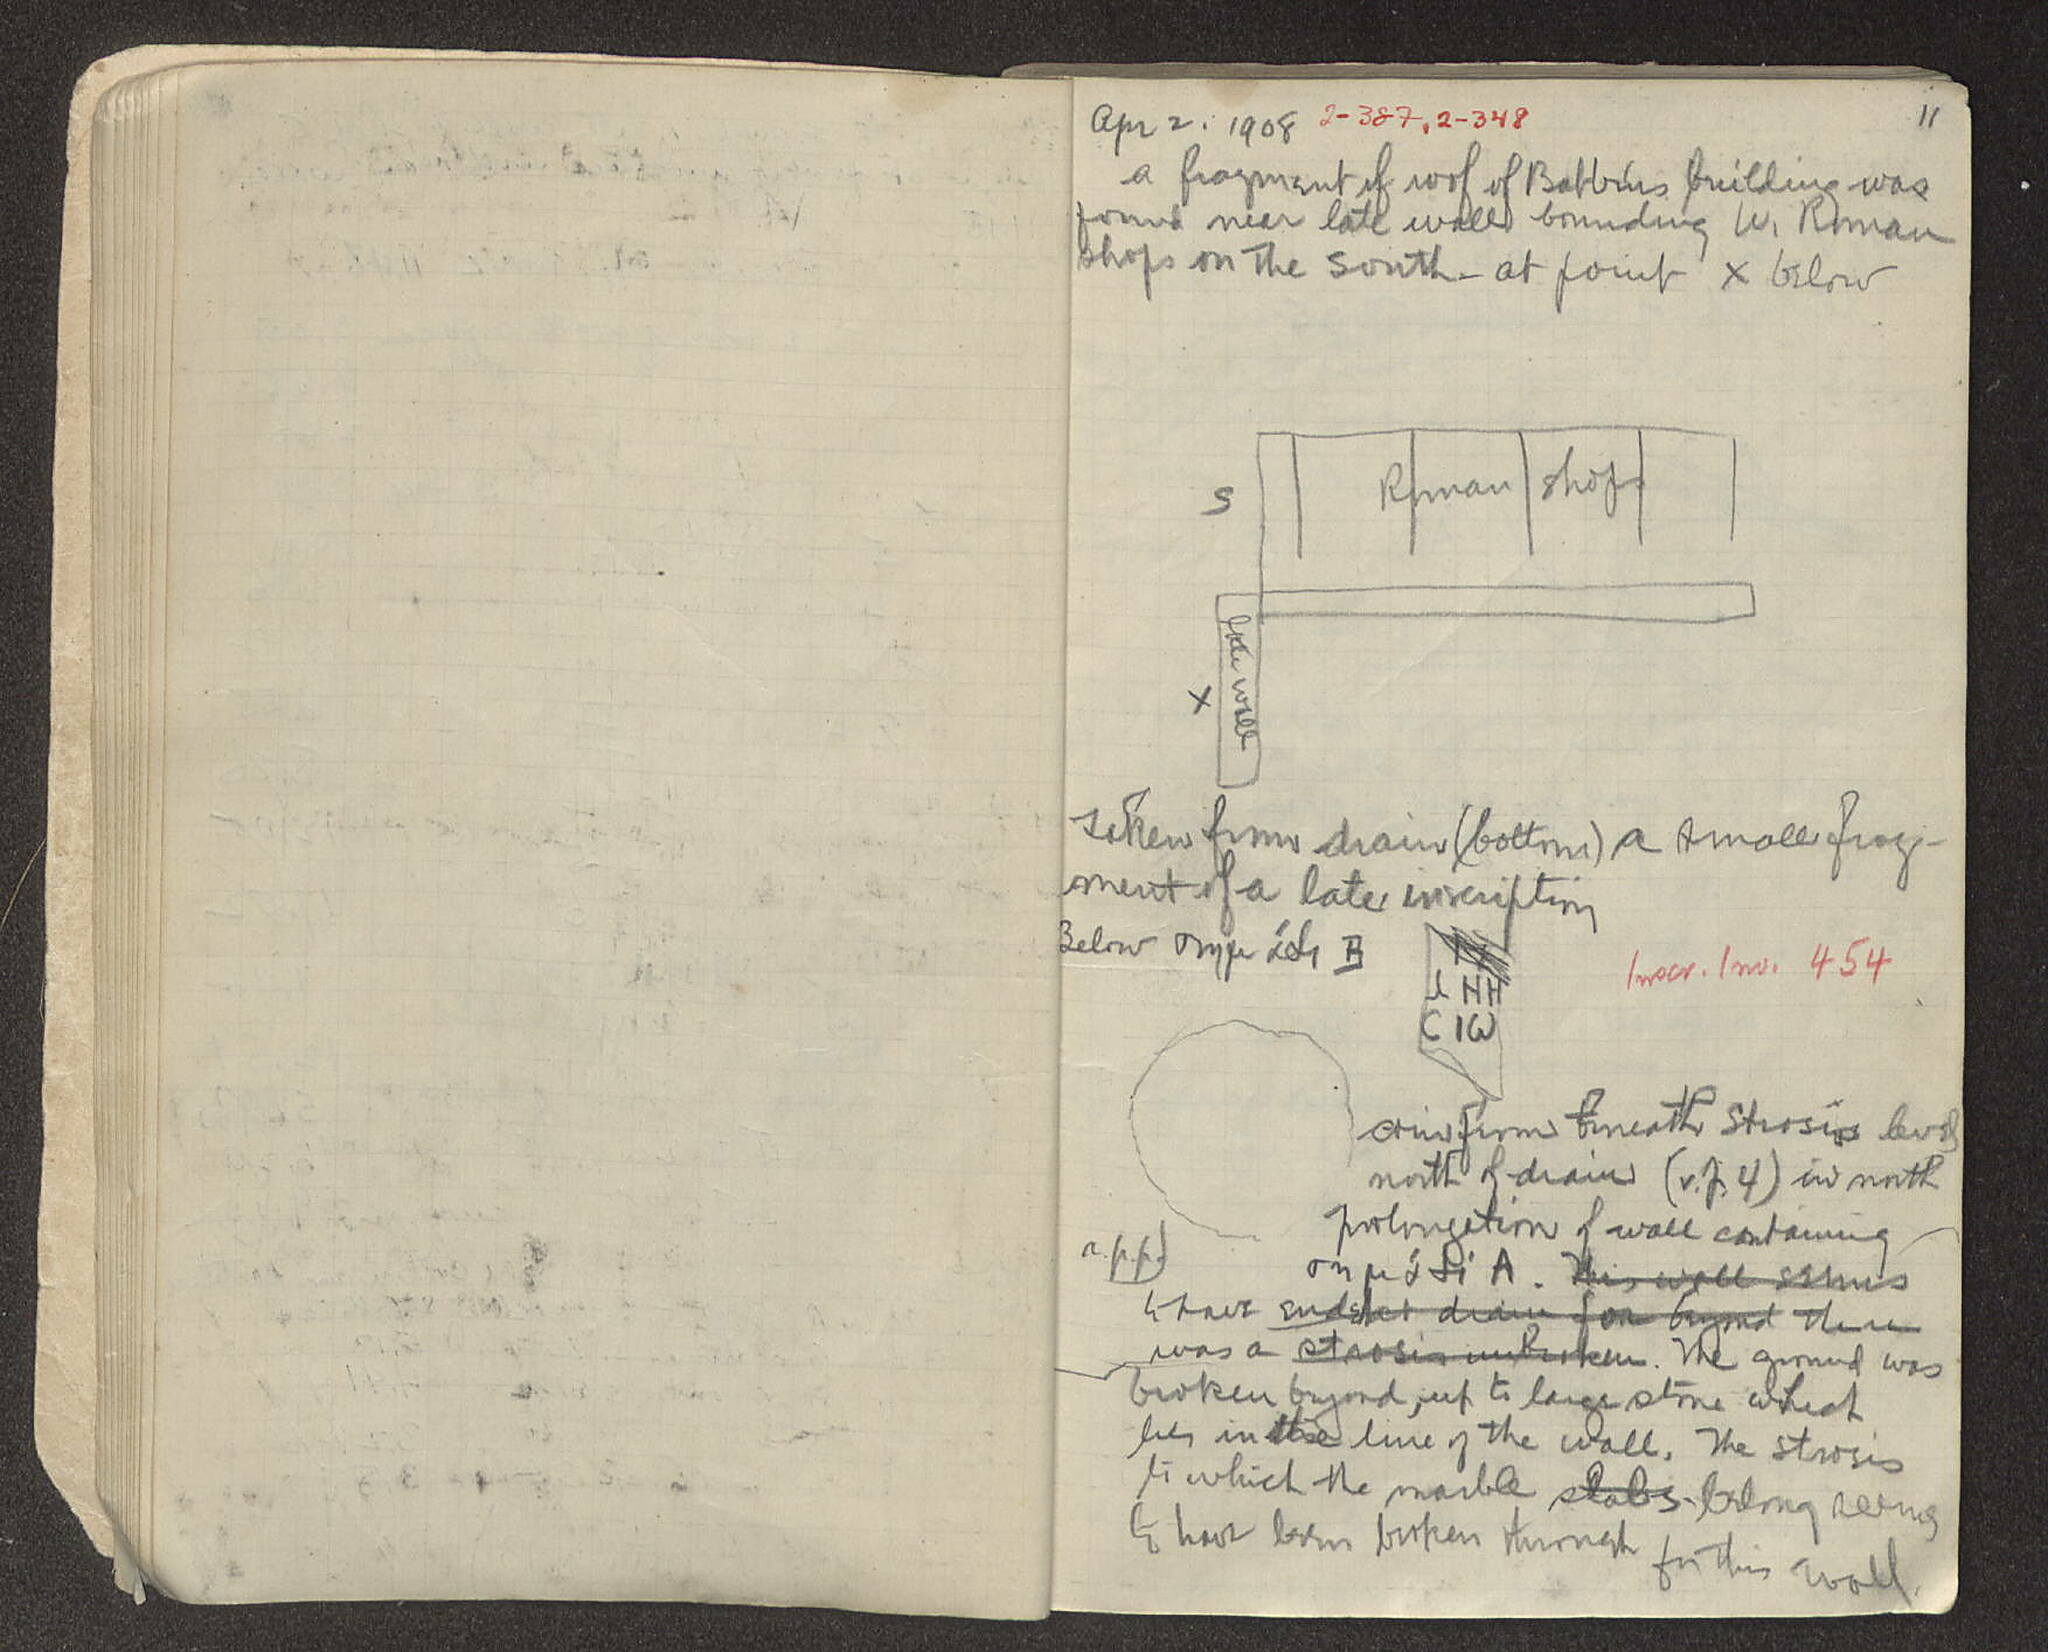 Apr 2. 1908 2-387, 2-348
11
a fragment of roof of Babbius building was
found near late wall bounding W. Roman
shops on the south - at point x below
S
Roman shops
late wall
x
Taken from drain (bottom) a small frag-
ment of a late inscription
Below σημάδι B
HH
C Iω
Inscr. Inv. 454
coin from beneath strosis level
north of drain (v.p. 4) in north
prolongation of wall containing
a.p.p.
σημάδι A. This wall seems
to have ended at drain for beyond there
was a strosis unbroken. The ground was
broken beyond, up to large stone which
lies in the line of the wall. The strosis
to which the marble slabs belong seems
to have been broken through for this wall.